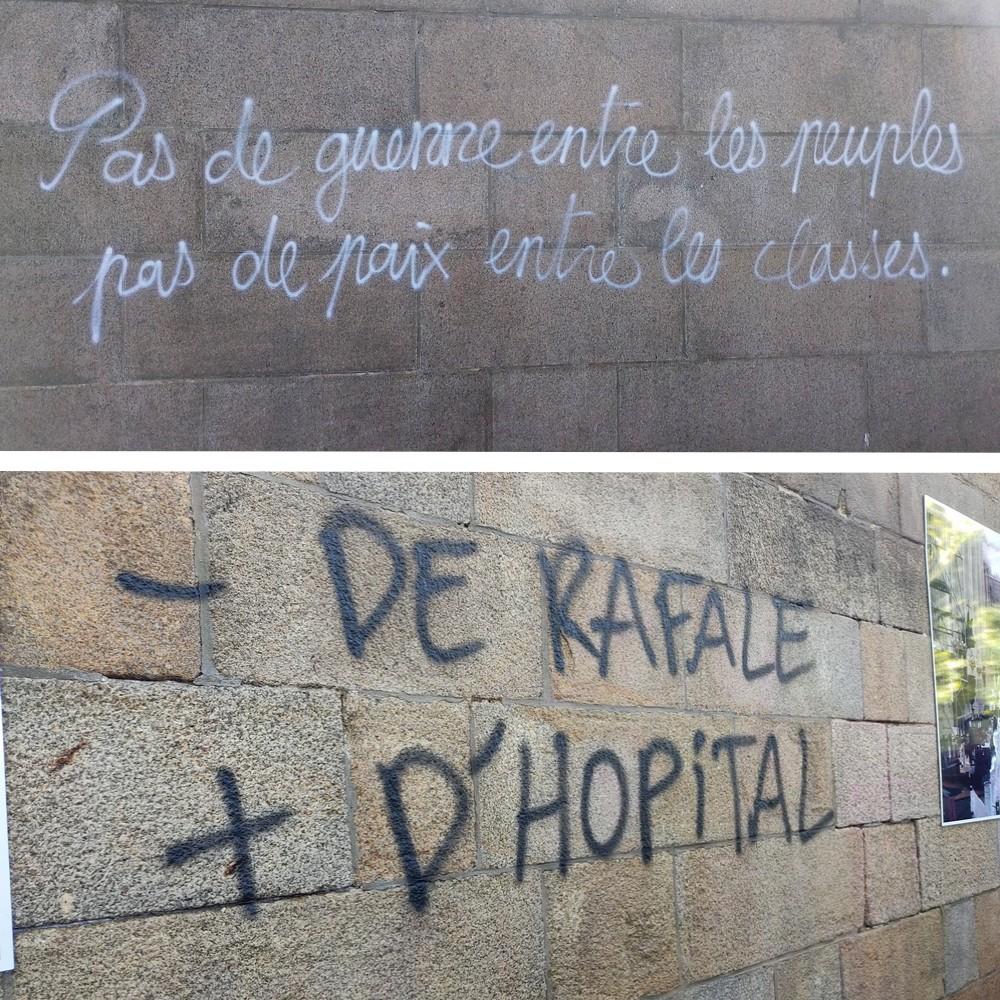 Pas de guerre entre les peuples
pas de paix entre les classes.
- DE RAFALE
+ D'HOPiTAL